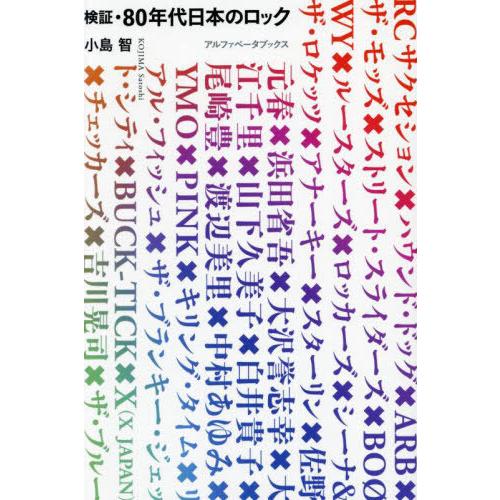 検証・80年代日本のロック
小島 智
KOJIMA Satoshi
アルファベータブックス
RCサクセション✖ハウンド・ドッグ✖ARB✖
ザ・モッズ✖ストリート・スライダーズ✖BOØ
WY✖ルースターズ✖ロッカーズ✖シーナ&
ザ・ロケッツ✖アナーキー✖スターリン✖佐野
元春✖浜田省吾✖大沢誉志幸✖大
江千里✖山下久美子✖白井貴子✖
尾崎豊✖渡辺美里✖中村あゆみ✖
YMO✖PINK✖キリング・タイム✖リ
アル・フィッシュ✖ザ・ブランキー・ジェッ
ト・シティ✖BUCK-TICK✖X(X JAPAN)
✖チェッカーズ✖吉川晃司✖ザ・ブルー